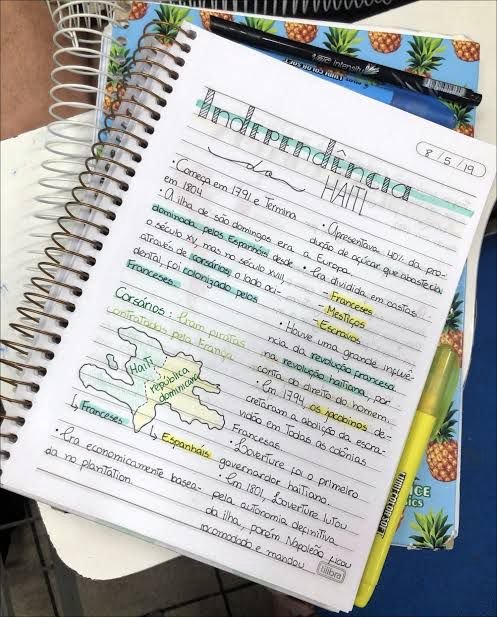 8/5/19
Independência
do HAITI
• Começa em 1791 e Termina
em 1804
• A ilha de são domingos era
dominada pelos Espanhóis desde
o século XV, mas no século XVIII,
através de corsários o lado oci-
dental foi colonizado pelos
Franceses
Corsários: Eram piratas
contratados pela França
Haiti
república
dominicana
↳ Franceses
↳ Espanhóis
• Era economicamente basea-
da no plantation
• Apresentava 40% da pro-
dução de açúcar que abastecia
a Europa.
• Era dividida em castas.
- Franceses
- Mestiços
- Escravos
• Houve uma grande influên-
cia da revolução francesa
na revolução haitiana, por
conta do direito do homem.
• Em 1794, os jacobinos de-
cretaram a abolição da escra-
vidão em Todas as colônias
Francesas.
• Loverture foi o primeiro
governardor haitiano.
• Em 1801, Loverture lutou
pela autonomia definitiva
da ilha, porém Napoleão ficou
incomodado e mandou
tilibra
intensity